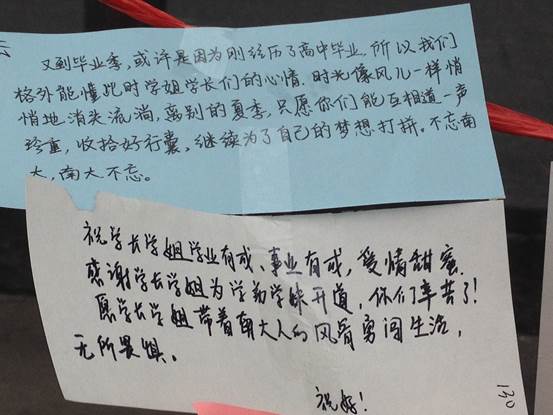 云
又到毕业季,或许是因为刚经历了高中毕业,所以我们
格外能懂此时学姐学长们的心情。时光像风儿一样悄
悄地消失流淌,离别的夏季,只愿你们能互相道一声
珍重,收拾好行囊,继续为了自己的梦想打拼。不忘南
大,南大不忘。
祝学长学姐学业有成、事业有成,爱情甜蜜.
感谢学长学姐为学弟学妹开道,你们辛苦了!
愿学长学姐带着南大人的风骨勇闯生活,
无所畏惧。
祝好!
130